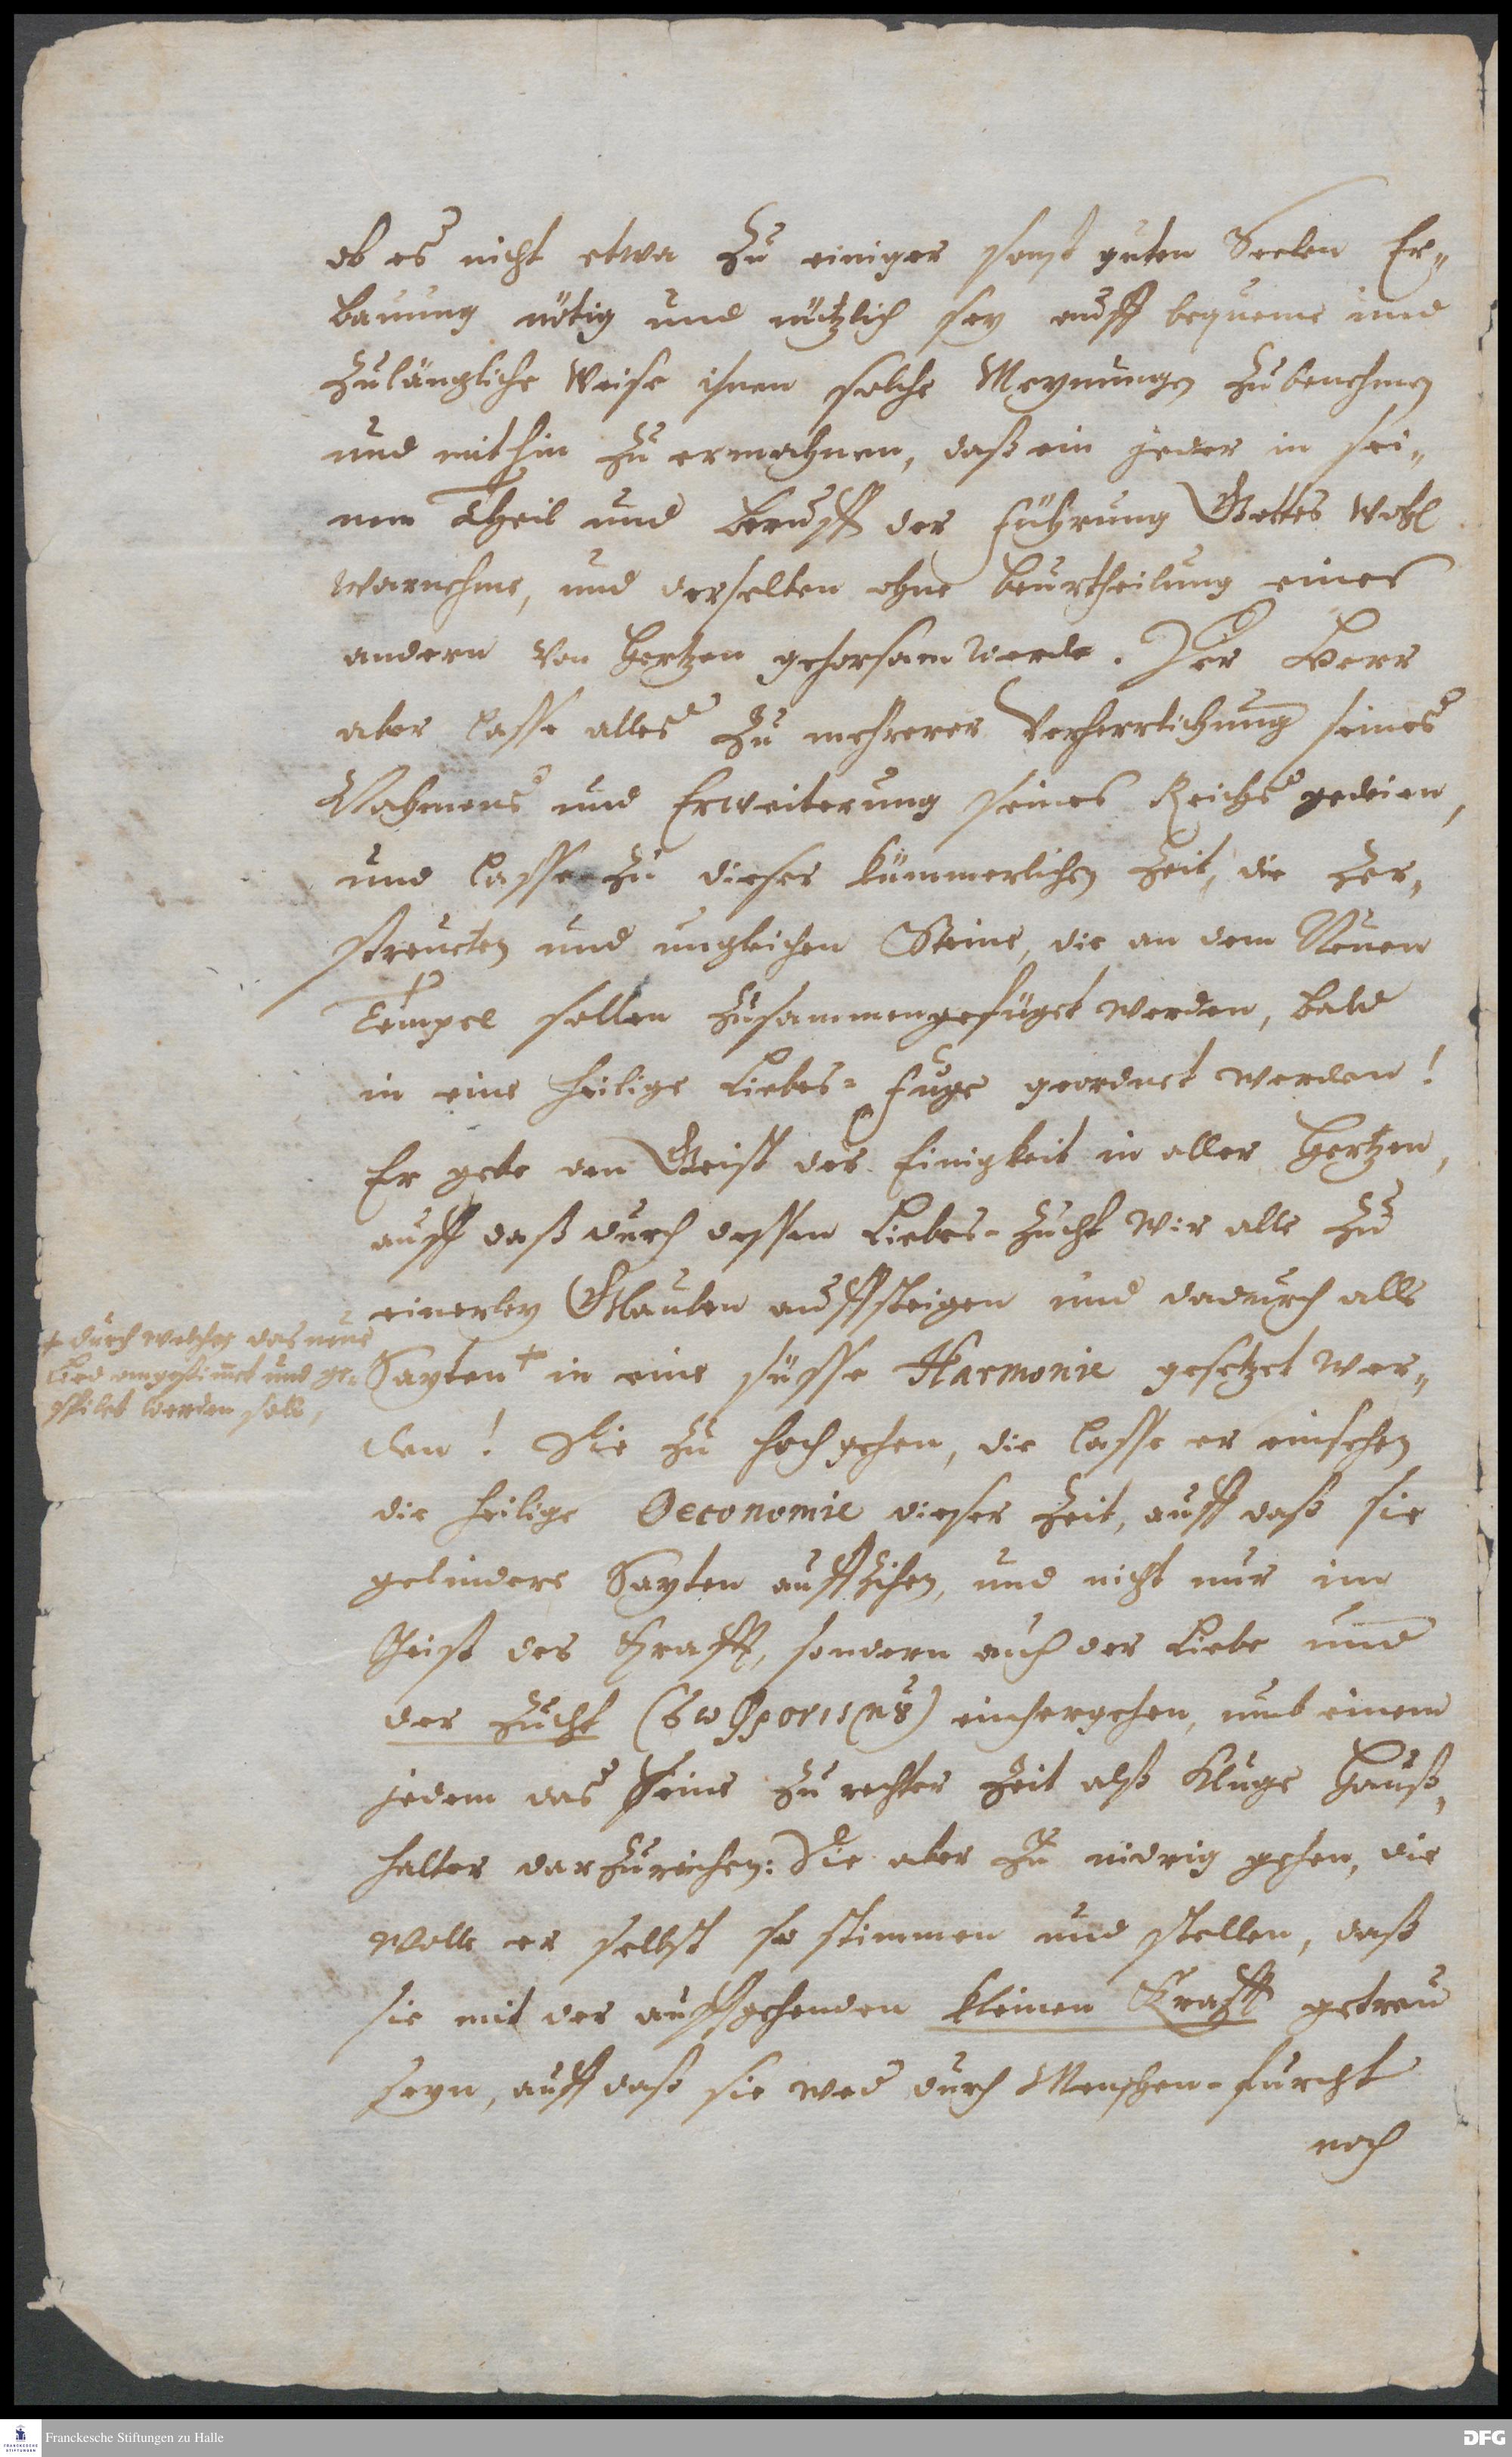 ob es nicht etwa zu einiger sonst guten Seelen Er-
bauung nötig und nützlich sey auff bequeme und
zulängliche Weise ihnen solche Meynungen zubenehmen
und mithin zu ermahnen, daß ein jeder in sei-
nem Theil und Beruff der Führung Gottes wohl
warnehme, und derselben ohne Beurtheilung eines
andern von Hertzen gehorsam werde. Der Herr
aber lasse alles zu mehrerer Verherrlichung seines
Nahmens und Erweiterung seines Reichs gedeien,
und lasse zu dieser kümmerlichen Zeit, die zer-
streueten und ungleichen Steine, die an dem Neuen
Tempel sollen zusammengefüget werden, bald
in eine heilige Liebes-Fuge geordnet werden!
Er gebe den Geist der Einigkeit in aller Hertzen,
auff daß durch dessen Liebes-Zucht wir alle zu
einerley Glauben auffsteigen und dadurch alle
Sayten + in eine süsse Harmonie gesetzet wer-
+ durch welche das neue
Lied angestimmet und ge-
spielet werden soll,
den! Die zu hoch gehen, die lasse er einsehen
die heilige Oeconomie dieser Zeit, auff daß sie
gelindere Sayten auffzihen, und nicht nur im
Geist der Krafft, sondern auch der Liebe und
der Zucht (σωφρονισμȣ) einhergehen, umb einem
jedem das Seine zu rechter Zeit alß kluge Hauß-
halter darzureichen: Die aber zu nidrig gehen, die
wolle er selbst so stimmen und stellen, daß
sie mit der auffgehenden kleinen Krafft getreu
seyn, auff daß sie wed durch Menschen-furcht
noch
Franckesche Stiftungen zu Halle
DFG